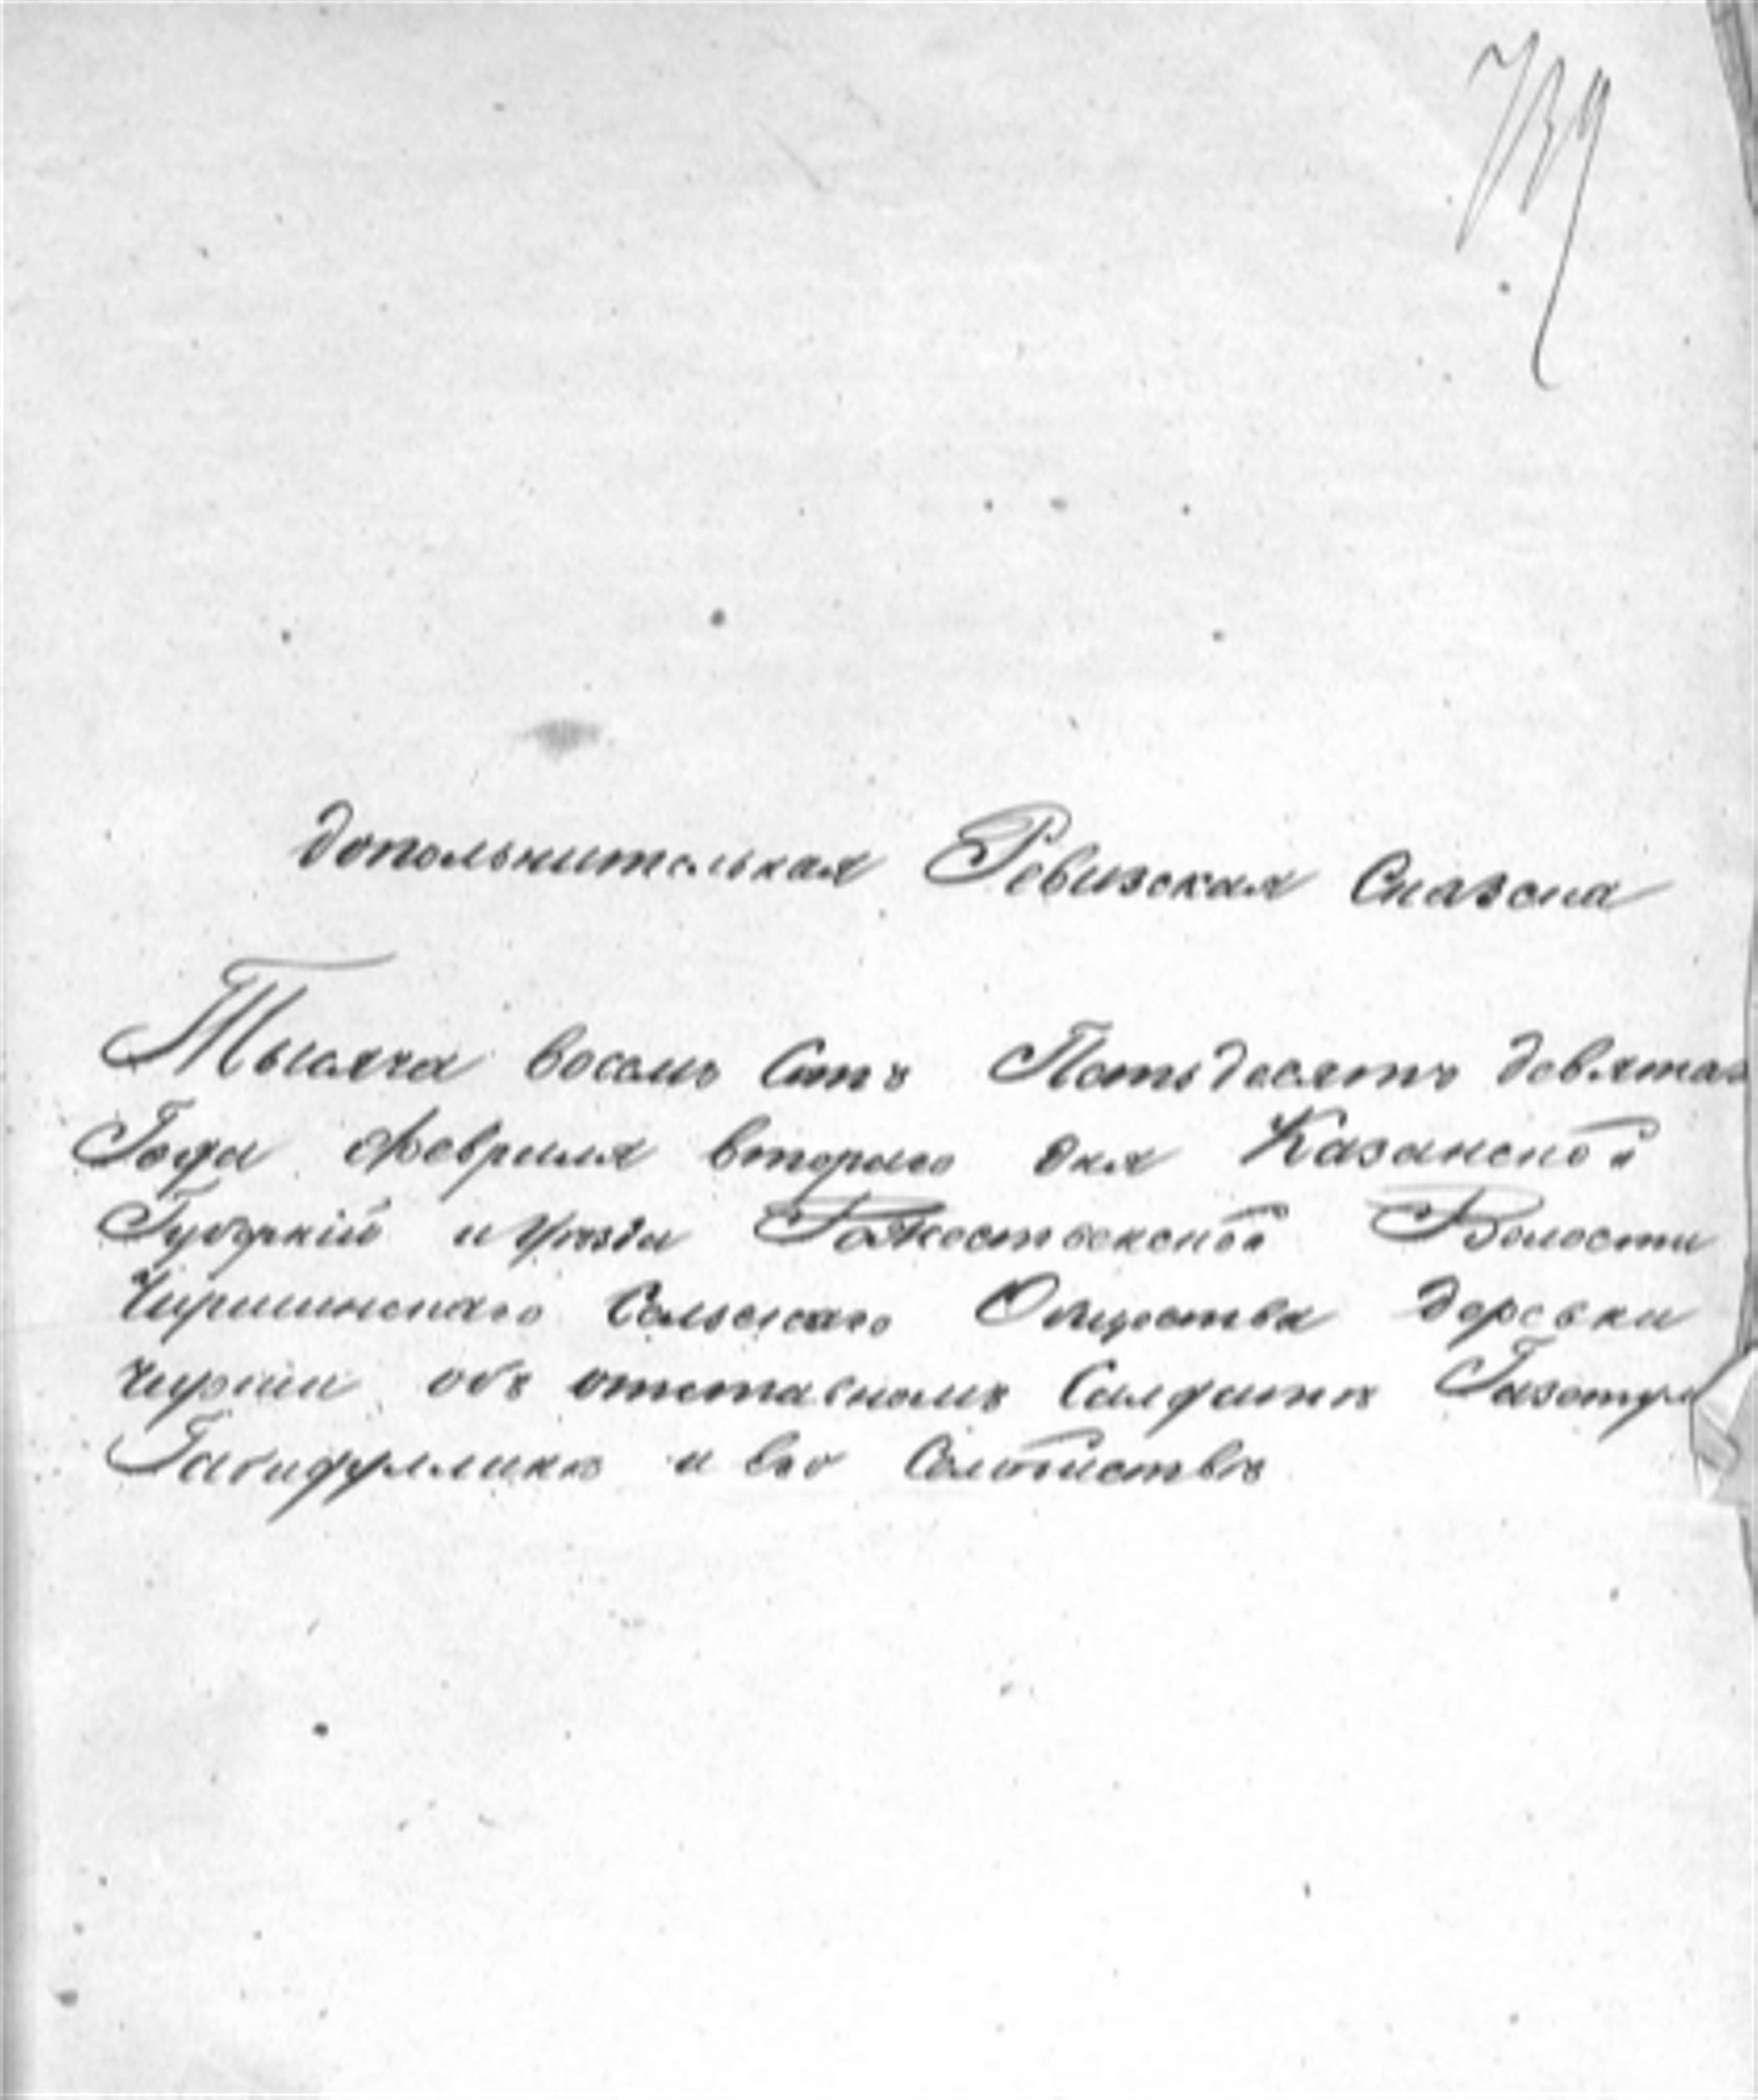 739
дополънительная Ревизская Сказка
Тысяча восемь Сотъ Пятьдесятъ девятаго
Года Февраля втораго дня Казанской
Губернiй и уѣзда Рожественской Волости
Чиршинскаго Сельскаго Общества деревни
Чирши объ отставномъ Салдатѣ
Габидуллинѣ и его Семействѣ